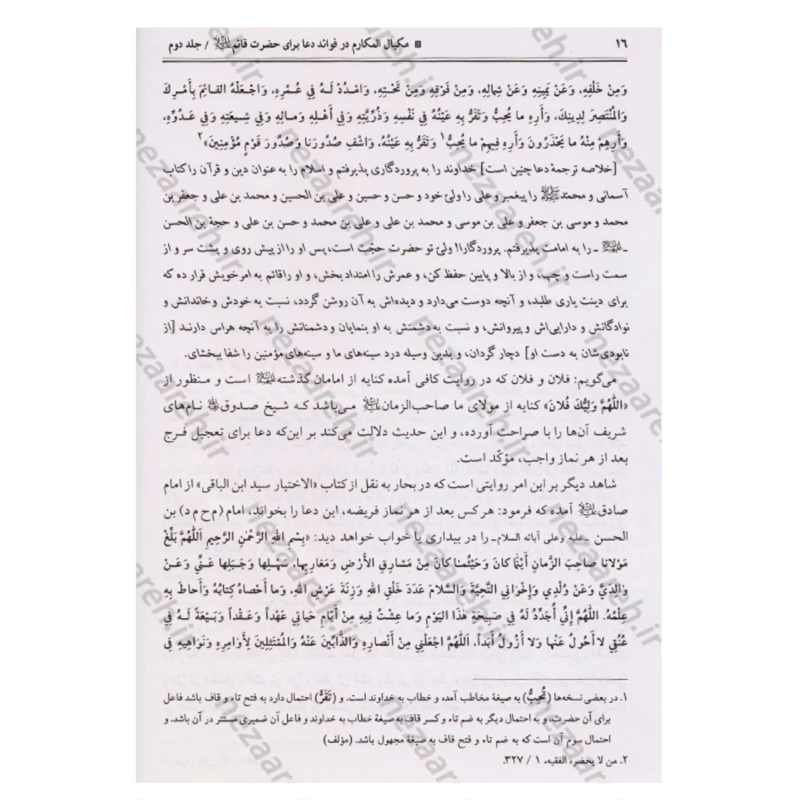 ۱۶
■ مکیال المکارم در فوائد دعا برای حضرت قائم / جلد دوم
وَمِنْ خَلْفِهِ، وَعَنْ يَمِينِهِ وَعَنْ شِمالِهِ، وَمِنْ فَوْقِهِ وَمِنْ تَحْتِهِ، وَامْدُدْ لَهُ فِي عُمُرِهِ، وَاجْعَلْهُ القائِمَ بِأَمْرِكَ
وَالْمُنْتَصِرَ لِدِينِكَ، وَأَرِهِ ما يُحِبُّ وَتَقَرُّ بِهِ عَيْنُهُ فِي نَفْسِهِ وَذُرِّيَّتِهِ وَفِي أَهْلِهِ وَمالِهِ وَفِي شِيعَتِهِ وَفِي عَدُوِّهِ،
وَأَرِهِمْ مِنْهُ ما يَحْذَرُونَ وَأَرِهِ فِيهِمْ ما يُحِبُّ۱ وَتَقَرُّ بِهِ عَيْنُهُ، وَاشْفِ صُدُورَنا وَصُدُورَ قَوْمٍ مُؤْمِنِينَ»۲
[خلاصه ترجمهٔ دعا چنین است] خداوند را به پروردگاری پذیرفتم و اسلام را به عنوان دین و قرآن را کتاب
آسمانی و محمّد را پیغمبر و علی را ولیّ خود و حسن و حسین و علی بن الحسین و محمد بن علی و جعفر بن
محمد و موسی بن جعفر و علی بن موسی و محمد بن علی و علی بن محمد و حسن بن علی و حجة بن الحسن
ـ ـ را به امامت پذیرفتم. پروردگارا! ولیّ تو حضرت حجّت است، پس او را از پیش روی و پشت سر و از
سمت راست و چپ، و از بالا و پایین حفظ کن، و عمرش را امتداد بخش، و او را قائم به امر خویش قرار ده که
برای دینت یاری طلبد، و آنچه دوست می‌دارد و دیده‌اش به آن روشن گردد، نسبت به خودش و خاندانش و
نوادگانش و دارایی‌اش و پیروانش، و نسبت به دشمنش به او بنمایان و دشمنانش را به آنچه هراس دارند [از
نابودی‌شان به دست او] دچار گردان، و بدین وسیله درد سینه‌های ما و سینه‌های مؤمنین را شفا ببخشای.
می‌گویم: فلان و فلان که در روایت کافی آمده کنایه از امامان گذشته است و منظور از
«اللّهُمَّ وَلِيُّكَ فُلانَ» کنایه از مولای ما صاحب‌الزمان می‌باشد که شیخ صدوق نام‌های
شریف آن‌ها را با صراحت آورده، و این حدیث دلالت می‌کند بر این‌که دعا برای تعجیل فرج
بعد از هر نماز واجب، مؤکّد است.
شاهد دیگر بر این امر روایتی است که در بحار به نقل از کتاب «الاختیار سید ابن الباقی» از امام
صادق آمده که فرمود: هر کس بعد از هر نماز فریضه، این دعا را بخواند، امام (م ح م د) بن
الحسن ـ علیه وعلی آبائه السلام ـ را در بیداری یا خواب خواهد دید: «بِسْمِ اللهِ الرَّحْمٰنِ الرَّحِيمِ اَللّهُمَّ بَلِّغْ
مَوْلانا صاحِبَ الزَّمانِ أَيْنَما كانَ وَحَيْثُما كانَ مِنْ مَشارِقِ الأَرْضِ وَمَغارِبِها، سَهْلِها وَجَبَلِها عَنِّي وَعَنْ
وَالِدَيَّ وَعَنْ وُلْدِي وَإِخْوَانِي التَّحِيَّةَ وَالسَّلامَ عَدَدَ خَلْقِ اللهِ وَزِنَةَ عَرْشِ اللهِ، وَما أَحْصاهُ كِتابُهُ وَأَحاطَ بِهِ
عِلْمُهُ. اَللّهُمَّ إِنِّي أُجَدِّدُ لَهُ فِي صَبِيحَةِ هذَا الْيَوْمِ وَما عِشْتُ فِيهِ مِنْ أَيّامِ حَياتِي عَهْداً وَعَقْداً وَبَيْعَةً لَهُ فِي
عُنُقِي لا أَحُولُ عَنْها وَلا أَزُولُ أَبَداً، اَللّهُمَّ اجْعَلْنِي مِنْ أَنْصارِهِ وَالذّابِّينَ عَنْهُ وَالْمُمْتَثِلِينَ لِأَوامِرِهِ وَنَواهِيهِ فِي
۱. در بعضی نسخه‌ها (تُحِبُّ) به صیغهٔ مخاطب آمده و خطاب به خداوند است. و (تَقَرُّ) احتمال دارد به فتح تاء و قاف باشد فاعل
برای آن حضرت، و به احتمال دیگر به ضم تاء و کسر قاف به صیغهٔ خطاب به خداوند و فاعل آن ضمیری مستتر در آن باشد. و
احتمال سوم آن است که به ضم تاء و فتح قاف به صیغهٔ مجهول باشد. (مؤلف)
۲. من لا یحضره الفقیه، ۱ / ۳۲۷.
nezaareh.ir